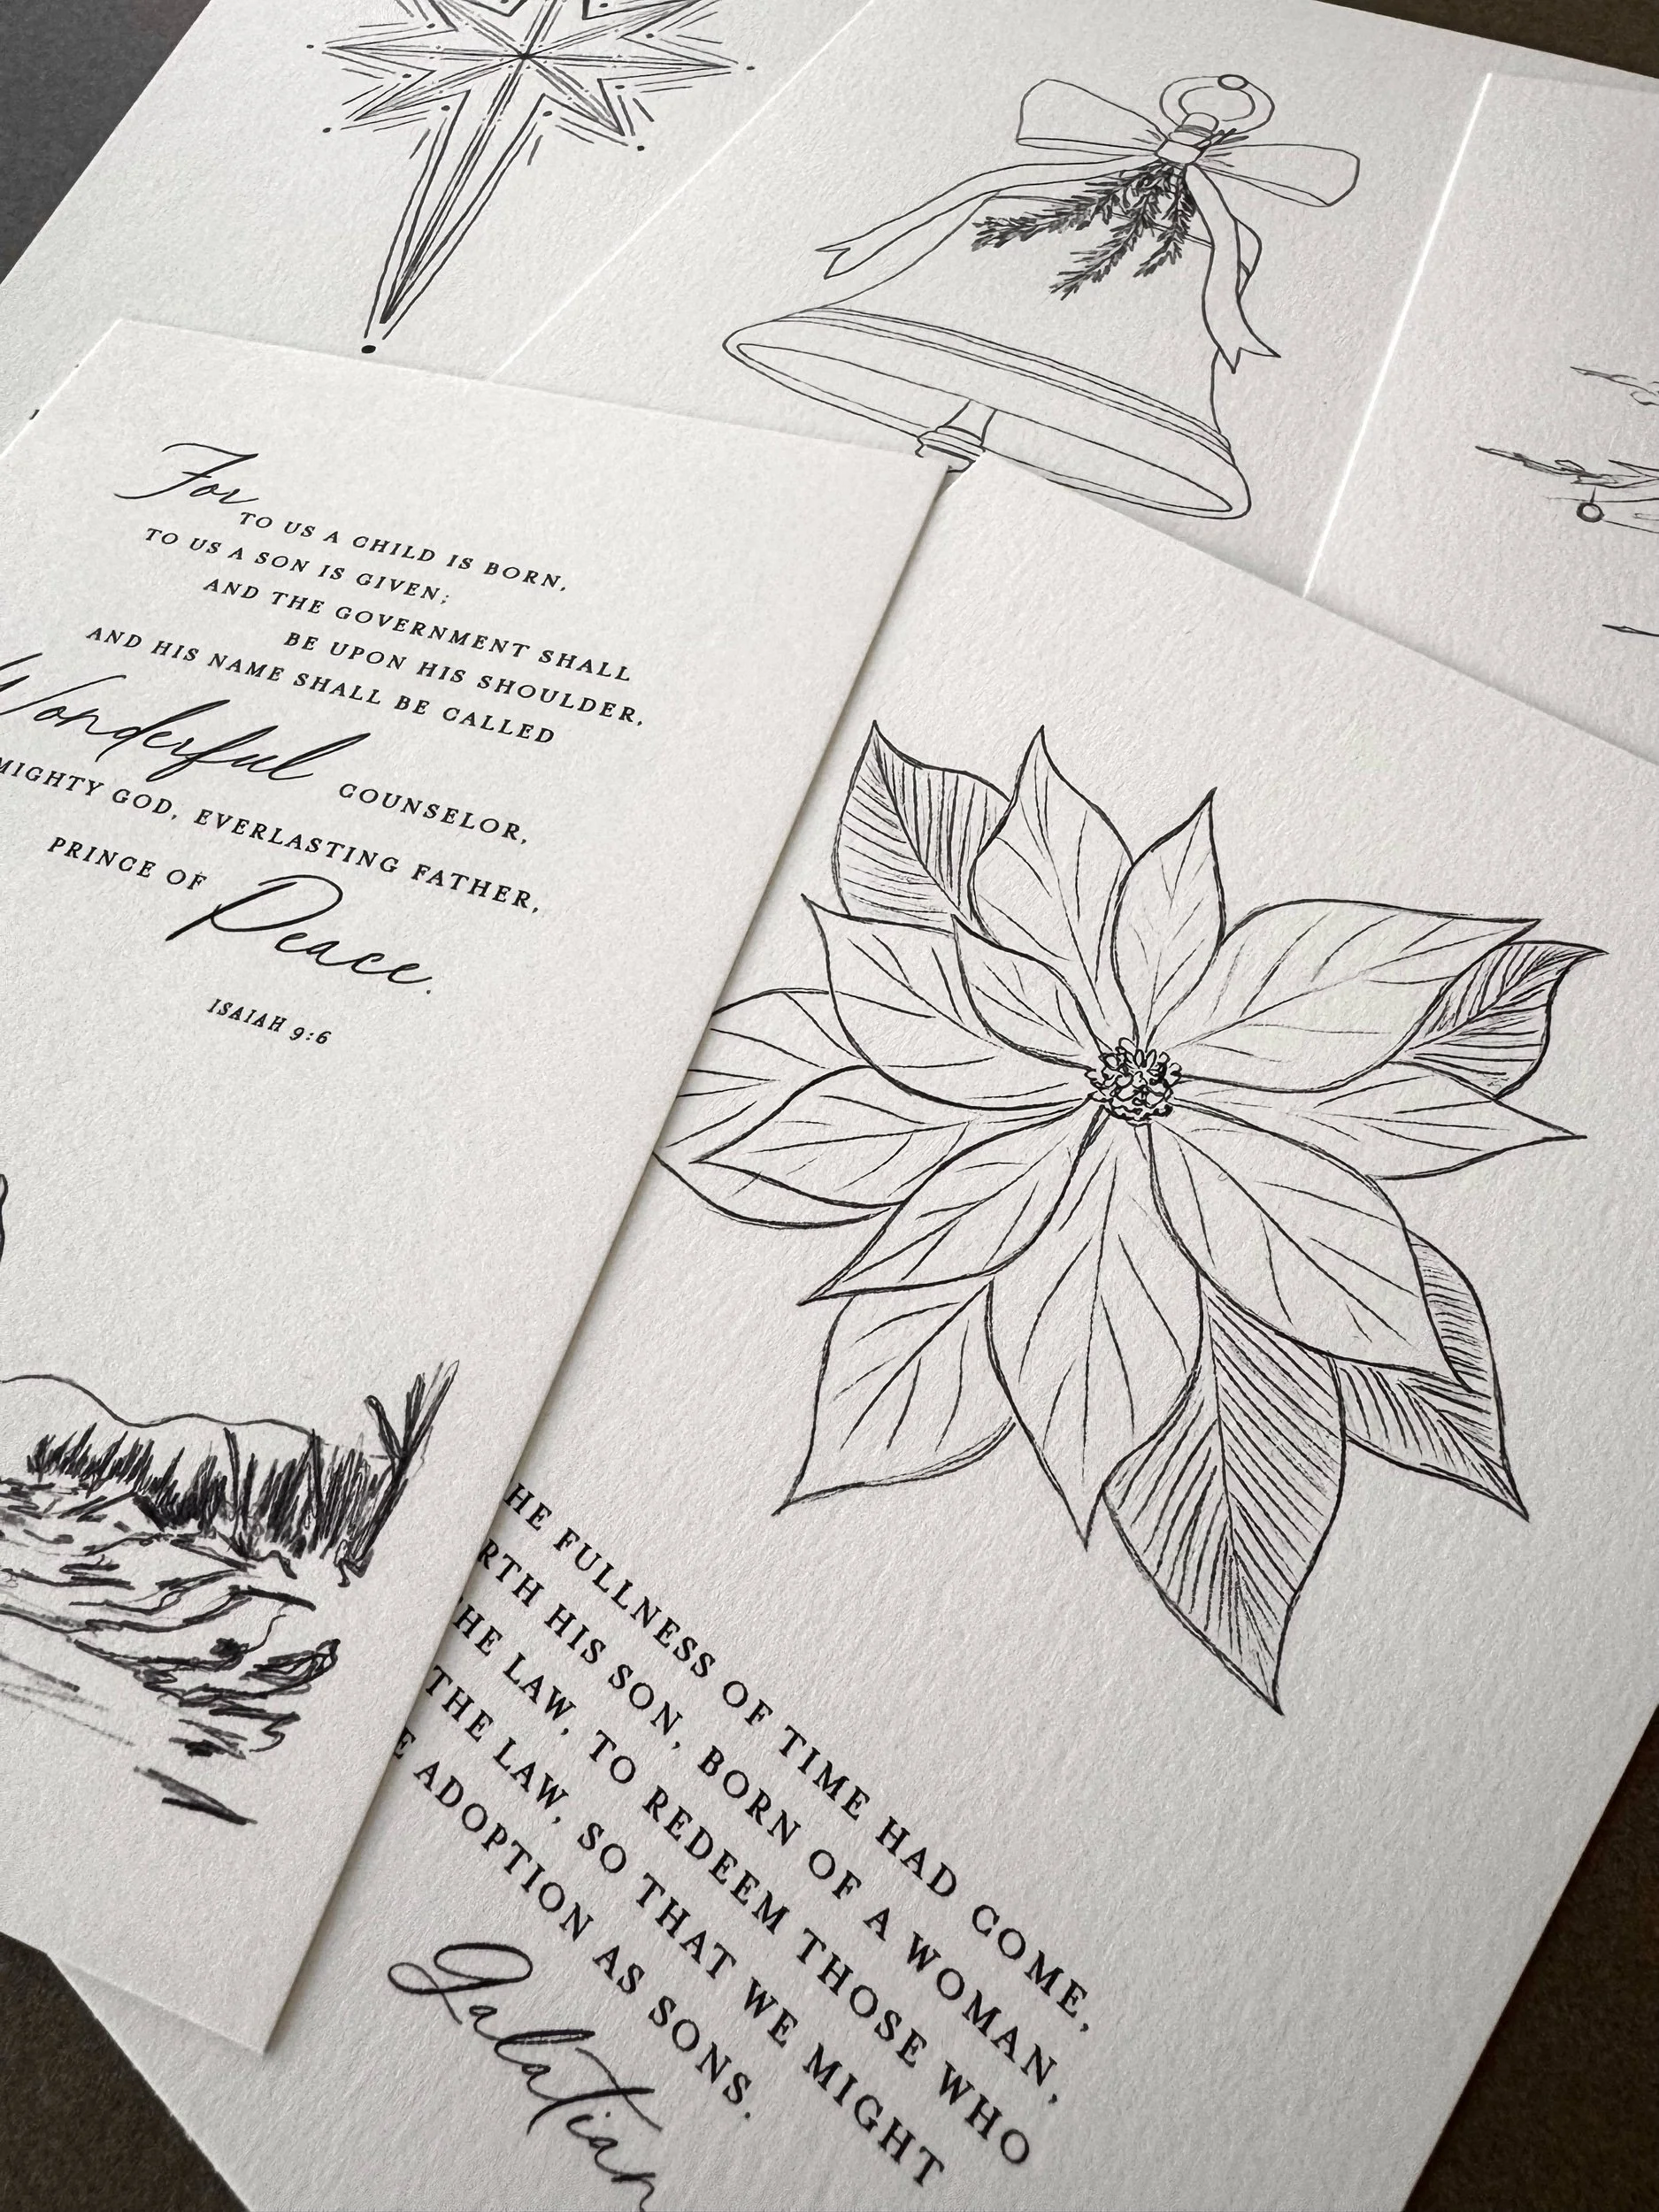 For
TO US A CHILD IS BORN,
TO US A SON IS GIVEN;
AND THE GOVERNMENT SHALL
BE UPON HIS SHOULDER,
AND HIS NAME SHALL BE CALLED
Wonderful COUNSELOR,
MIGHTY GOD, EVERLASTING FATHER,
PRINCE OF Peace.
ISAIAH 9:6
HE FULLNESS OF TIME HAD COME,
RTH HIS SON, BORN OF A WOMAN,
HE LAW, TO REDEEM THOSE WHO
THE LAW, SO THAT WE MIGHT
E ADOPTION AS SONS.
Galatian